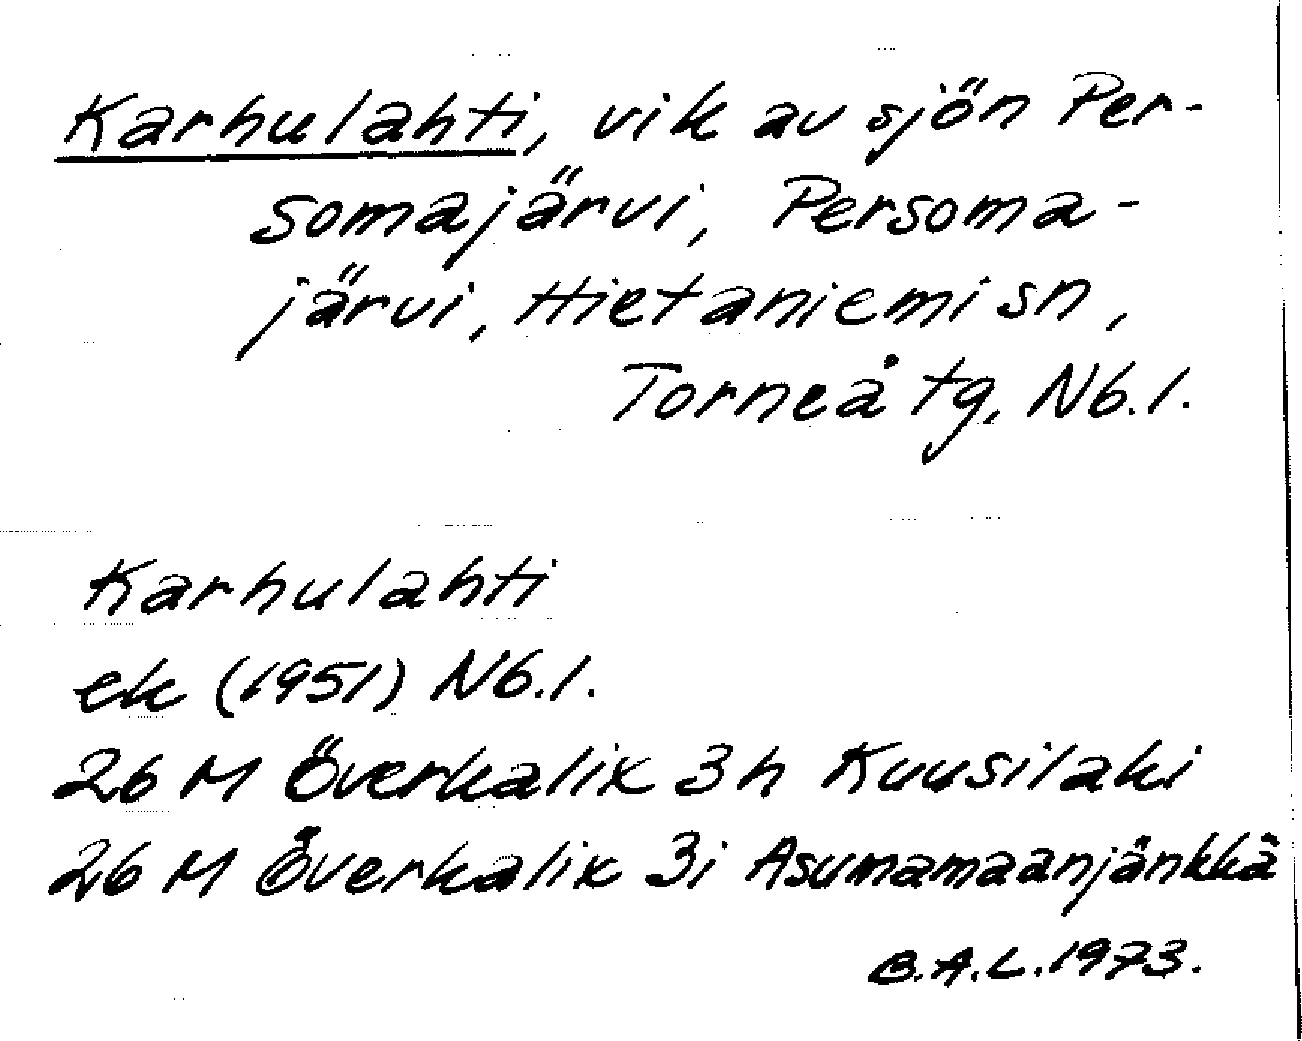 Karhulahti, vik av sjön Per-
somajärvi, Persoma-
järvi, Hietaniemi sn,
Torneå tg, Nb.l.
Karhulahti
ek (1951) Nb.l.
26 M Överkalix 3h Kuusilaki
26 M Överkalix 3i Asumamaanjänkkä
B.A.L. 1973.